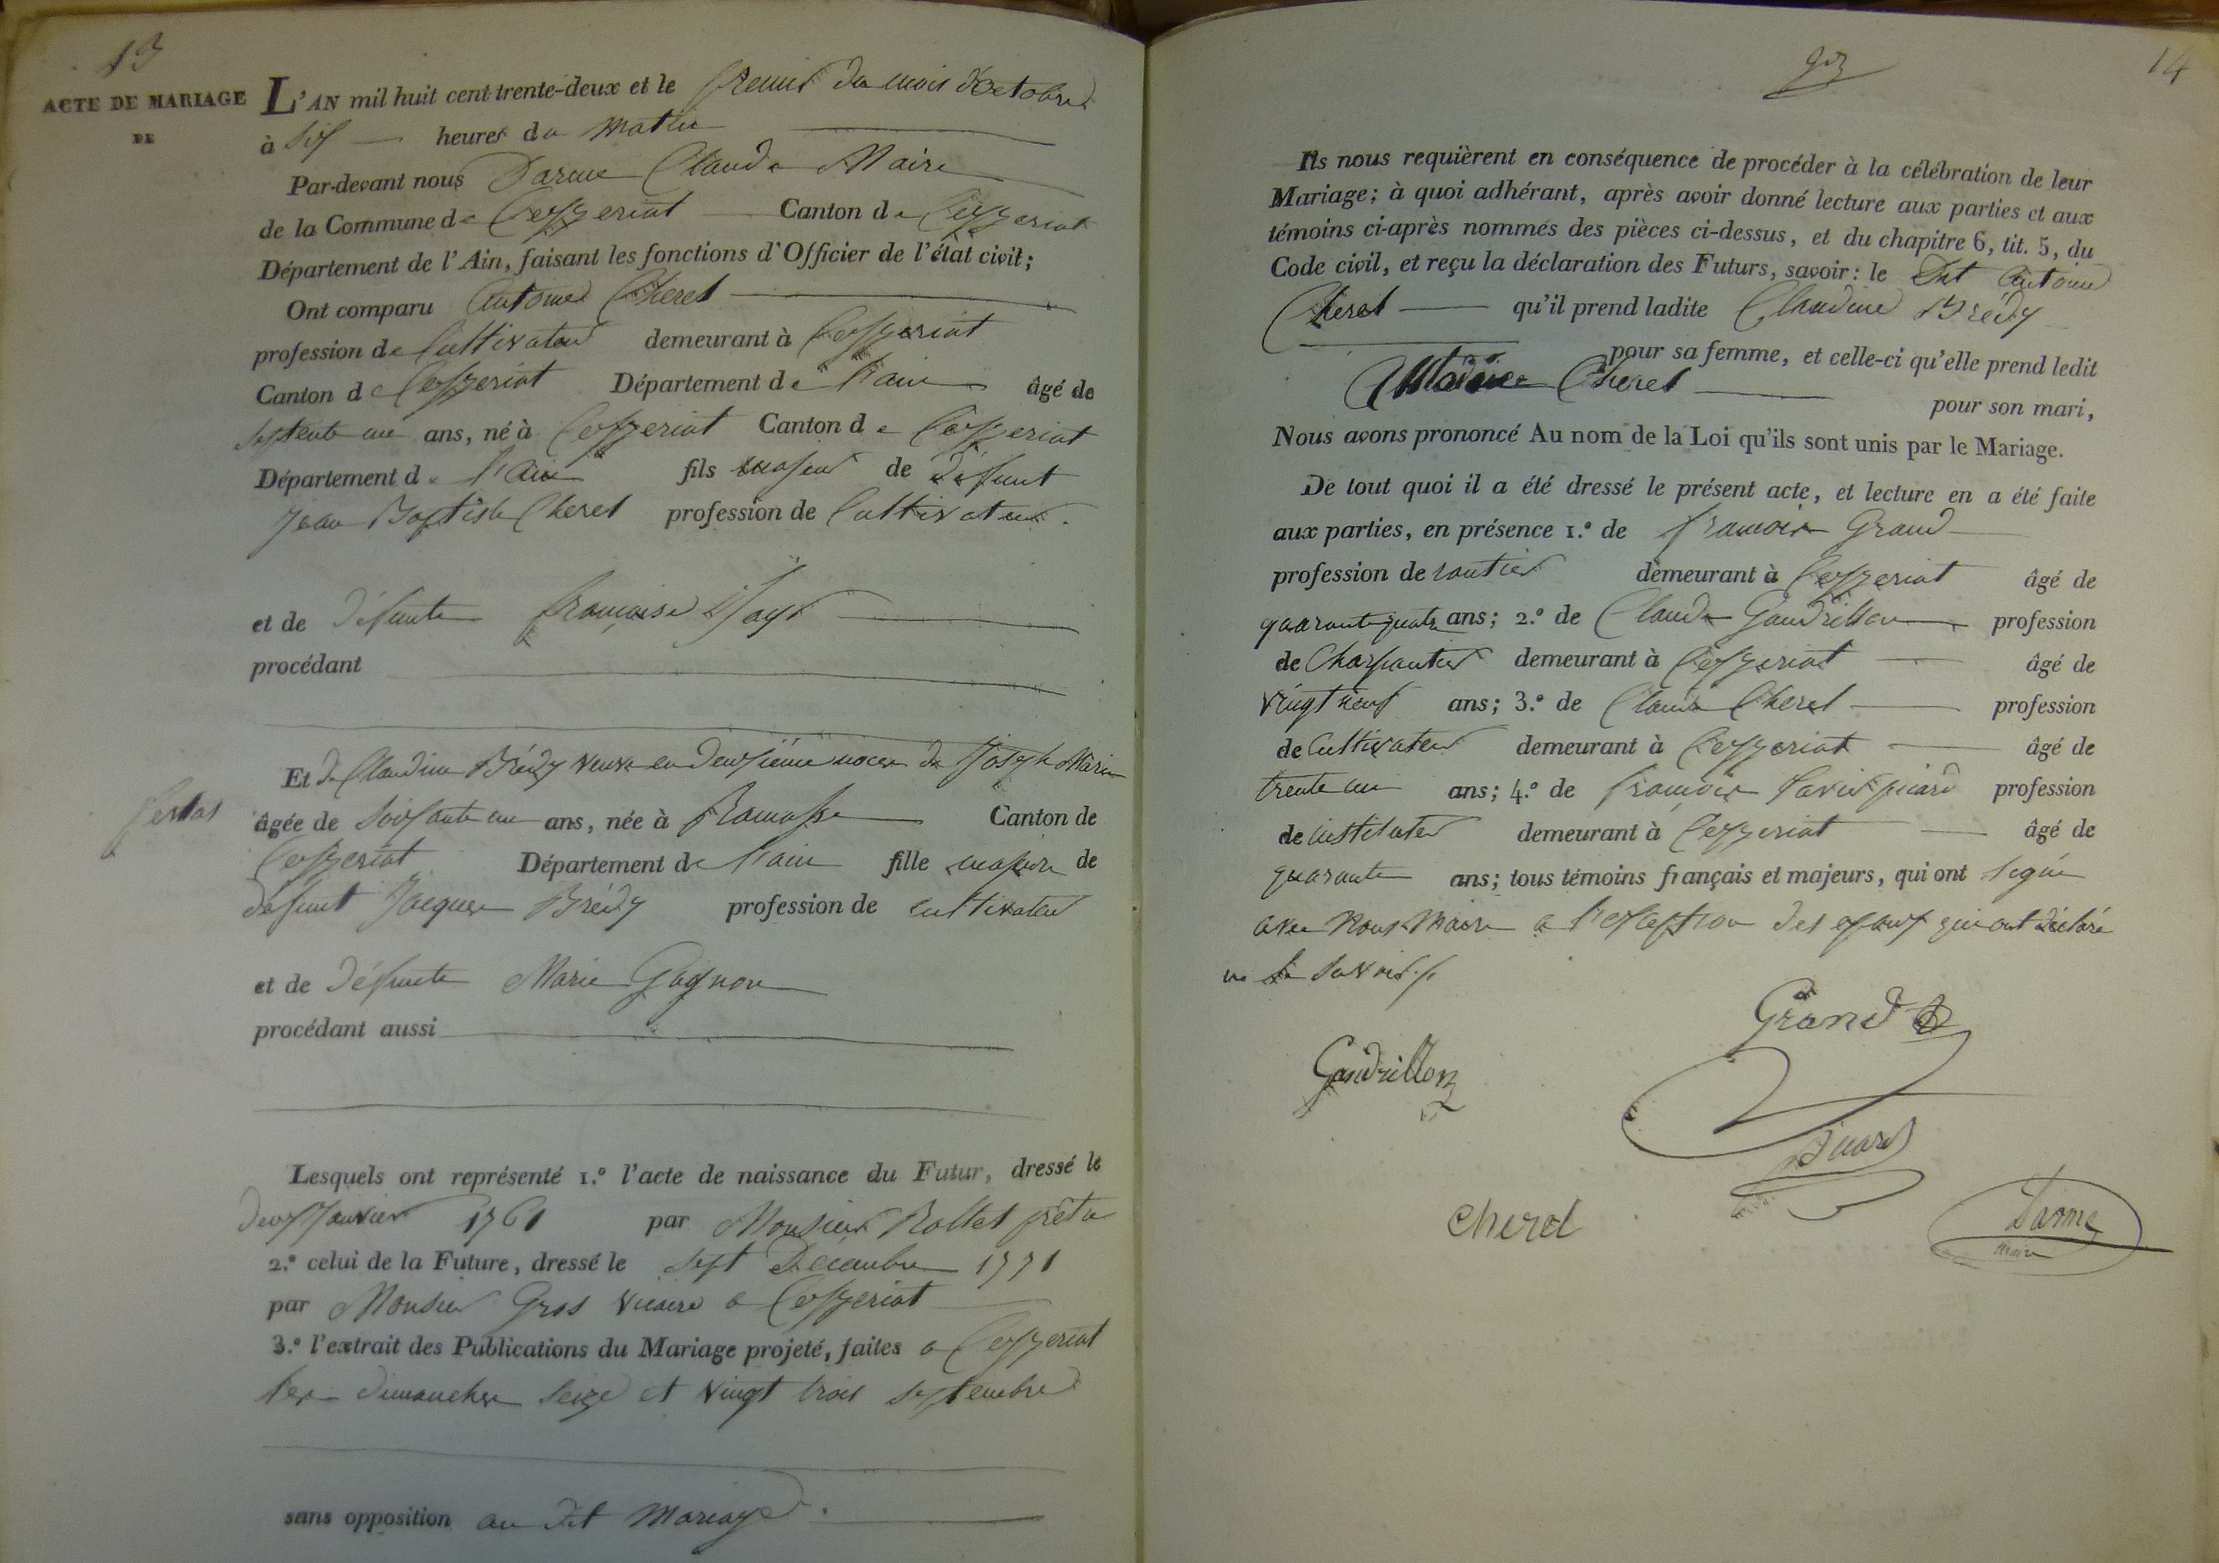 13
ACTE DE MARIAGE
DE
L'AN mil huit cent trente-deux et le premier du mois d'octobre
à six heures du matin
Par-devant nous Darme Claude Maire
de la Commune de Ceyzeriat Canton de Ceyzeriat
Département de l'Ain, faisant les fonctions d'Officier de l'état civil;
Ont comparu Antoine Cherel
profession de Cultivateur demeurant à Ceyzeriat
Canton de Ceyzeriat Département de l'ain âgé de
septente un ans, né à Ceyzeriat Canton de Ceyzeriat
Département de l'Ain fils majeur de défunt
Jean Baptiste Cherel profession de Cultivateur.
et de défunte françoise
procédant
Et de Claudine Brédy veuve en deuxième noces de Joseph Marie
âgée de soixante un ans, née à Ramasse Canton de
Ceyzeriat Département de l'ain fille majeure de
défunt Jacques Brédy profession de cultivateur
et de défunte Marie Gagnon
procédant aussi
Lesquels ont représenté 1.° l'acte de naissance du Futur, dressé le
deux Janvier 1761 par Monsieur Rollet prêtre
2.° celui de la Future, dressé le sept Décembre 1771
par Monsieur Gros vicaire a Ceyzeriat
3.° l'extrait des Publications du Mariage projeté, faites a Ceyzeriat
les dimanches seize et vingt trois septembre
sans opposition au dit mariage.
14
Ils nous requièrent en conséquence de procéder à la célébration de leur
Mariage; à quoi adhérant, après avoir donné lecture aux parties et aux
témoins ci-après nommés des pièces ci-dessus, et du chapitre 6, tit. 5, du
Code civil, et reçu la déclaration des Futurs, savoir: le dit Antoine
Cherel qu'il prend ladite Claudine Brédy
pour sa femme, et celle-ci qu'elle prend ledit
Antoine Cherel
pour son mari,
Nous avons prononcé Au nom de la Loi qu'ils sont unis par le Mariage.
De tout quoi il a été dressé le présent acte, et lecture en a été faite
aux parties, en présence 1.° de françois Grand
profession de rentier demeurant à Ceyzeriat âgé de
quarante quatre ans; 2.° de Claude Gaudrillon profession
de Charpentier demeurant à Ceyzeriat âgé de
vingt neuf ans; 3.° de Claude Cherel profession
de Cultivateur demeurant à Ceyzeriat âgé de
trente un ans; 4.° de françois picard profession
de instituteur demeurant à Ceyzeriat âgé de
quarante ans; tous témoins français et majeurs, qui ont signé
avec nous Maire a l'exception des epoux qui ont déclaré
ne le savoir.
Grand
Gaudrillon
Picard
Cherel
Darme
Maire